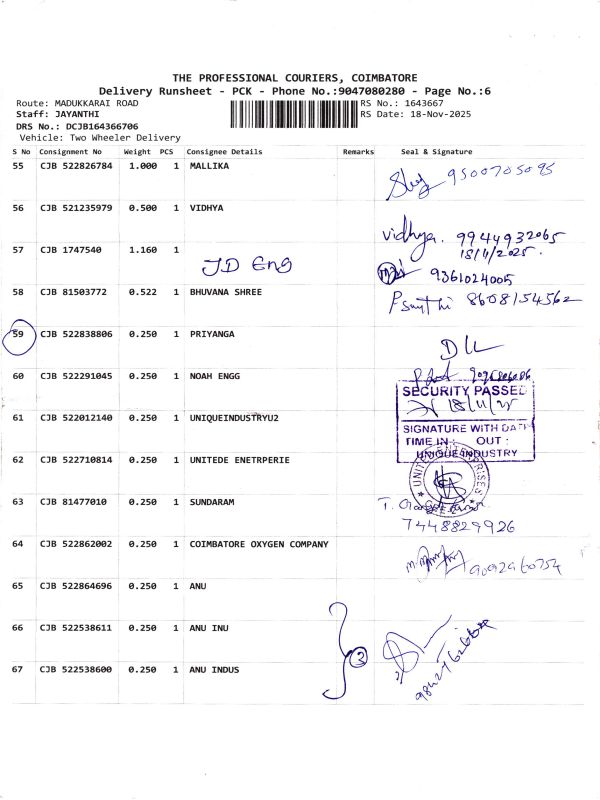 THE PROFESSIONAL COURIERS, COIMBATORE
Delivery Runsheet - PCK - Phone No.:9047080280 - Page No.:6
Route: MADUKKARAI ROAD
RS No.: 1643667
Staff: JAYANTHI
RS Date: 18-Nov-2025
DRS No.: DCJB164366706
Vehicle: Two Wheeler Delivery
S No Consignment No Weight PCS Consignee Details Remarks Seal & Signature
55 CJB 522826784 1.000 1 MALLIKA
9500705095
56 CJB 521235979 0.500 1 VIDHYA
vidhya. 9944932065
18/11/2025.
57 CJB 1747540 1.160 1
JD Eng
9361024005
58 CJB 81503772 0.522 1 BHUVANA SHREE
8608154562
59 CJB 522838806 0.250 1 PRIYANGA
DL
60 CJB 522291045 0.250 1 NOAH ENGG
SECURITY PASSED
18/11/25
61 CJB 522012140 0.250 1 UNIQUEINDUSTRYU2
SIGNATURE WITH DATE
TIME IN : OUT :
UNIQUE INDUSTRY
62 CJB 522710814 0.250 1 UNITEDE ENETRPERIE
63 CJB 81477010 0.250 1 SUNDARAM
7448829926
64 CJB 522862002 0.250 1 COIMBATORE OXYGEN COMPANY
9092960754
65 CJB 522864696 0.250 1 ANU
66 CJB 522538611 0.250 1 ANU INU
3
67 CJB 522538600 0.250 1 ANU INDUS